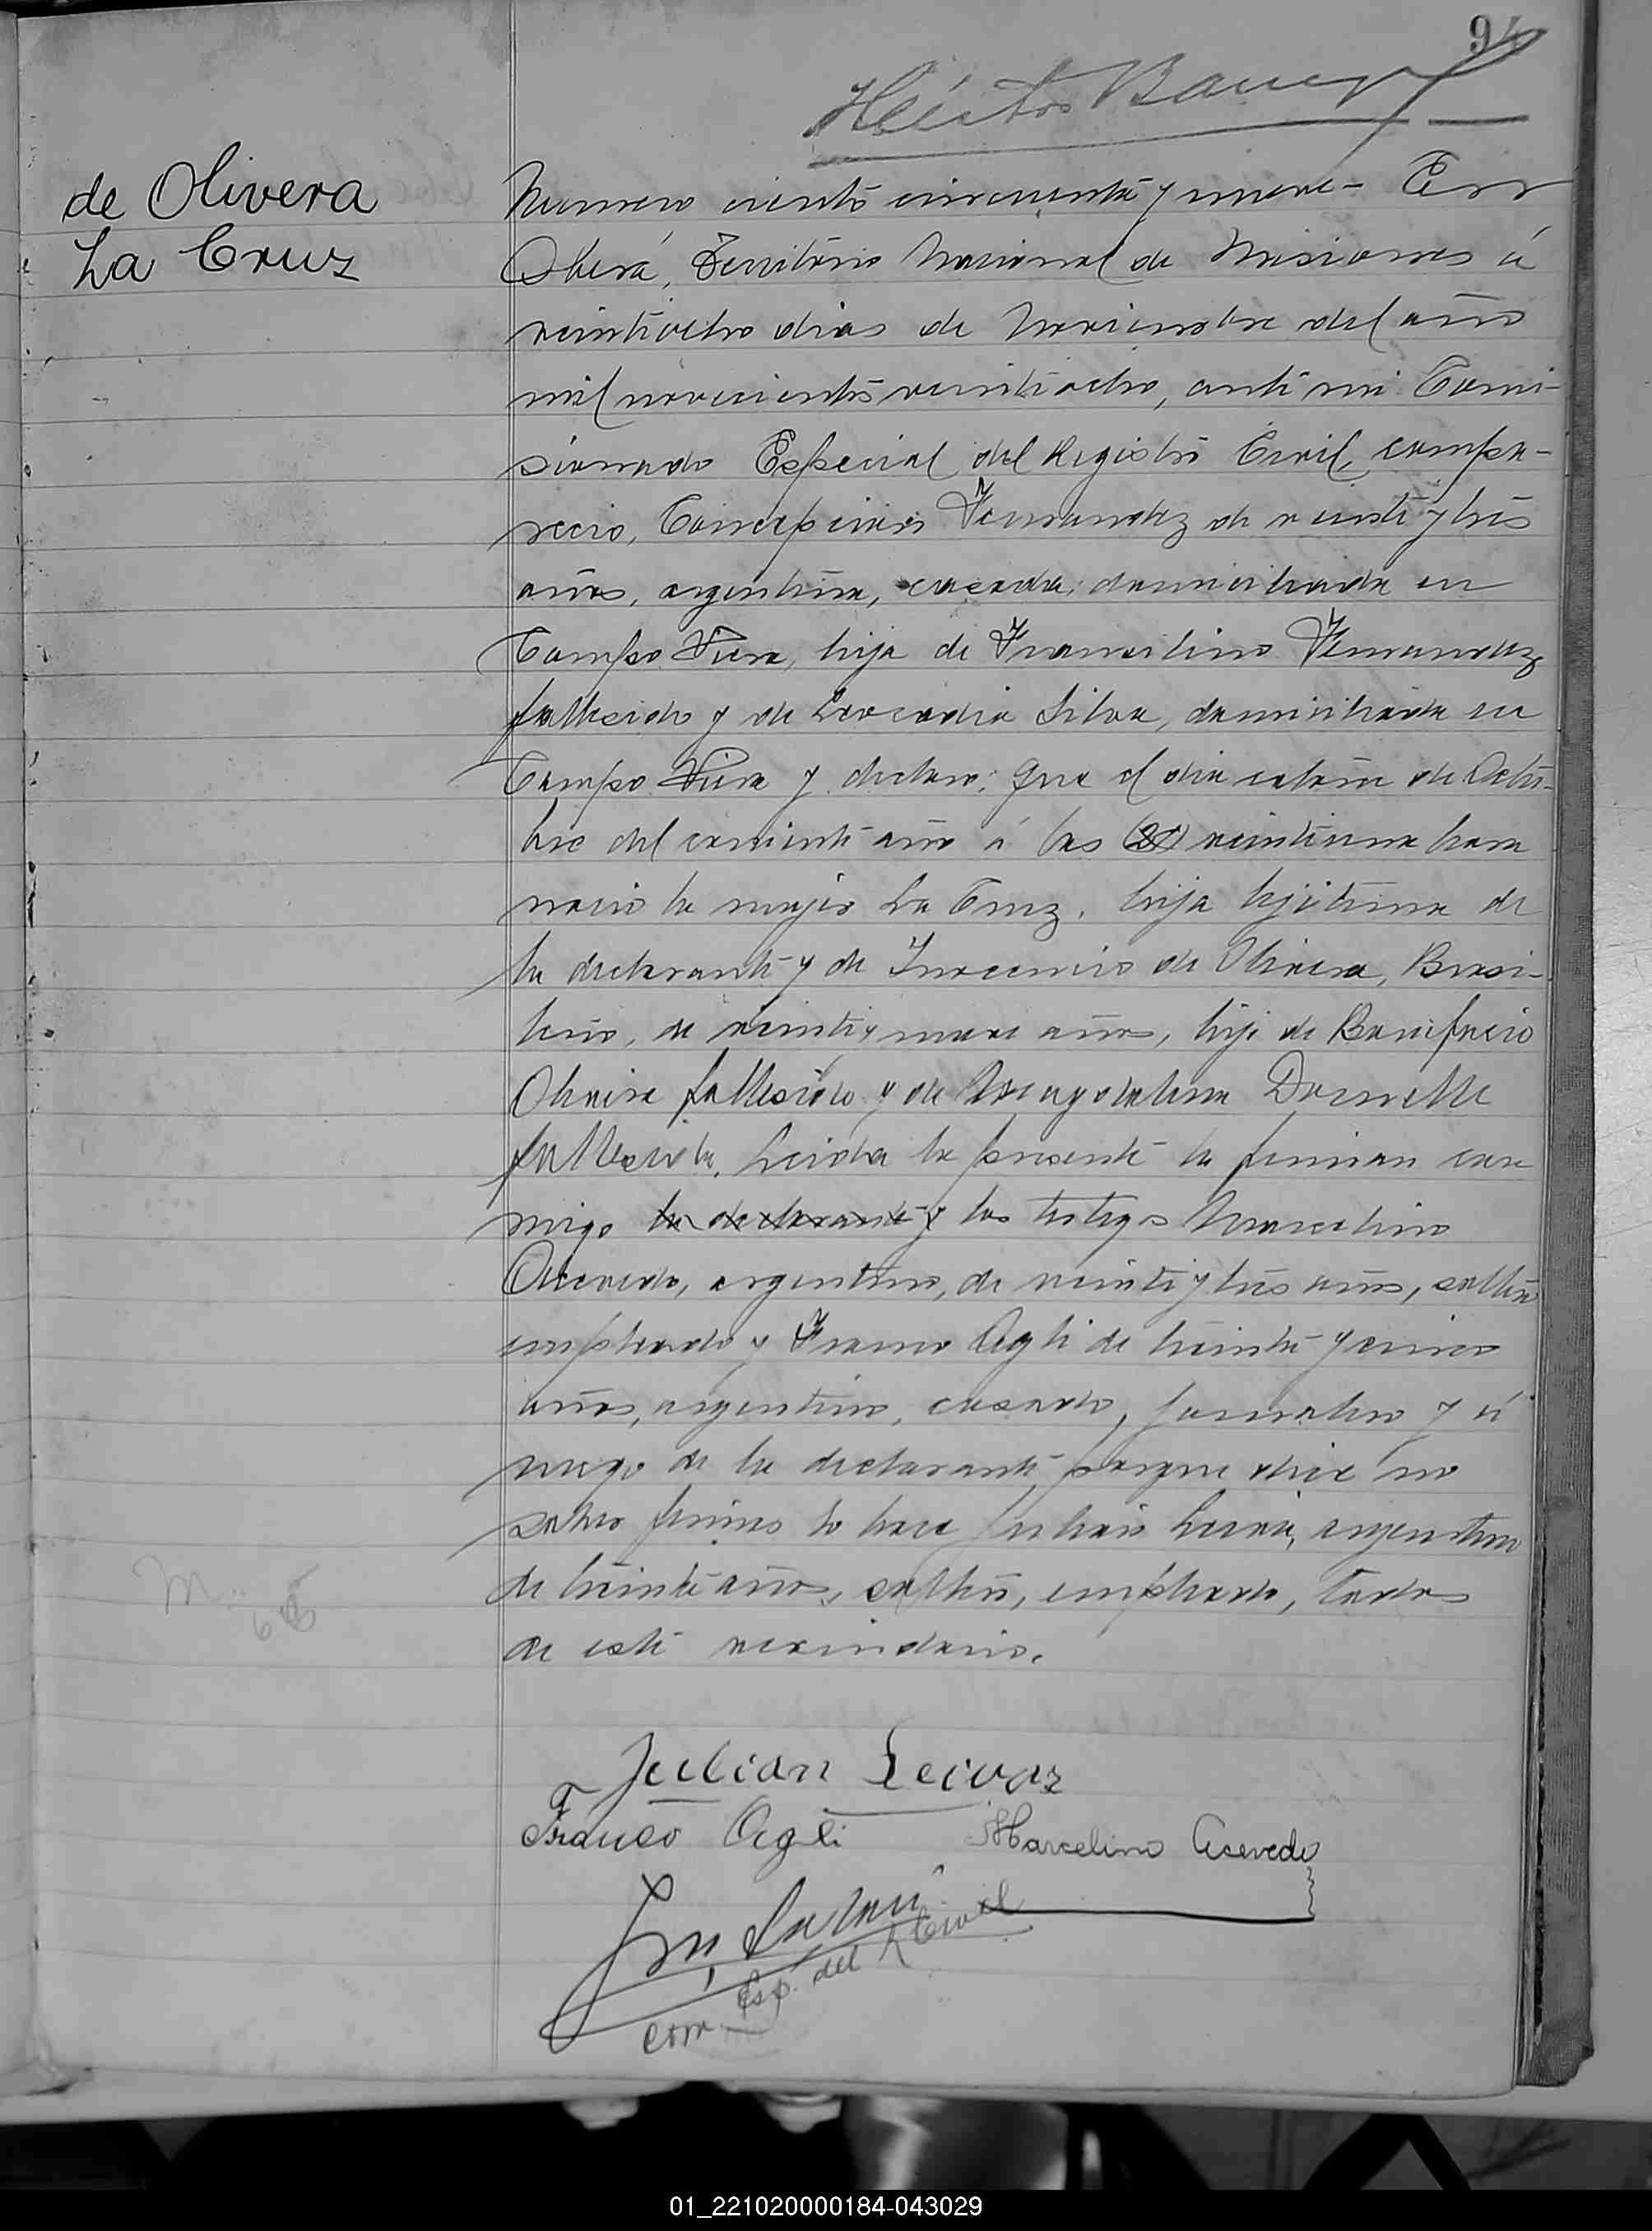 94
Héctor
de Olivera
La Cruz
Numero ciento cincuenta y nueve - En
Oberá, Territorio Nacional de Misiones á
veintiocho dias de Noviembre del año
mil novecientos veintiocho, ante mi Comi-
sionado Especial del Registro Civil, compa-
recio, Concepcion Fernandez de veinte y tres
años, argentina, casada, domiciliada en
Campo Viera, hija de Francelino Fernandez
fallecido y de Leocadia Silva, domiciliada en
Campo Viera y declaro: Que el dia catorce de Octu-
bre del corriente año á las (21) veintiuna hora
nacio la mujer La Cruz, hija lejitima de
la declarante y de Inocencio de Olivera, Brasi-
leño, de veinti y nueve años, hijo de Bonifacio
Oliveira fallecido y de Magdalena
fallecida. Leida la presente la firman con-
migo la declarante y los testigos Marcelino
Acevedo, argentino, de veinte y tres años, soltero
empleado y Franco Agli de treinta y cinco
años, argentino, casado, jornalero y á
ruego de la declarante, porque dice no
saber firmar lo hace Julian Leiva, argentino
de treinta años, soltero, empleado, todos
de este vecindario.
Julian Leivaz
Franco Agli Marcelino Acevedo
Com. Esp. del R Civil
01_221020000184-043029